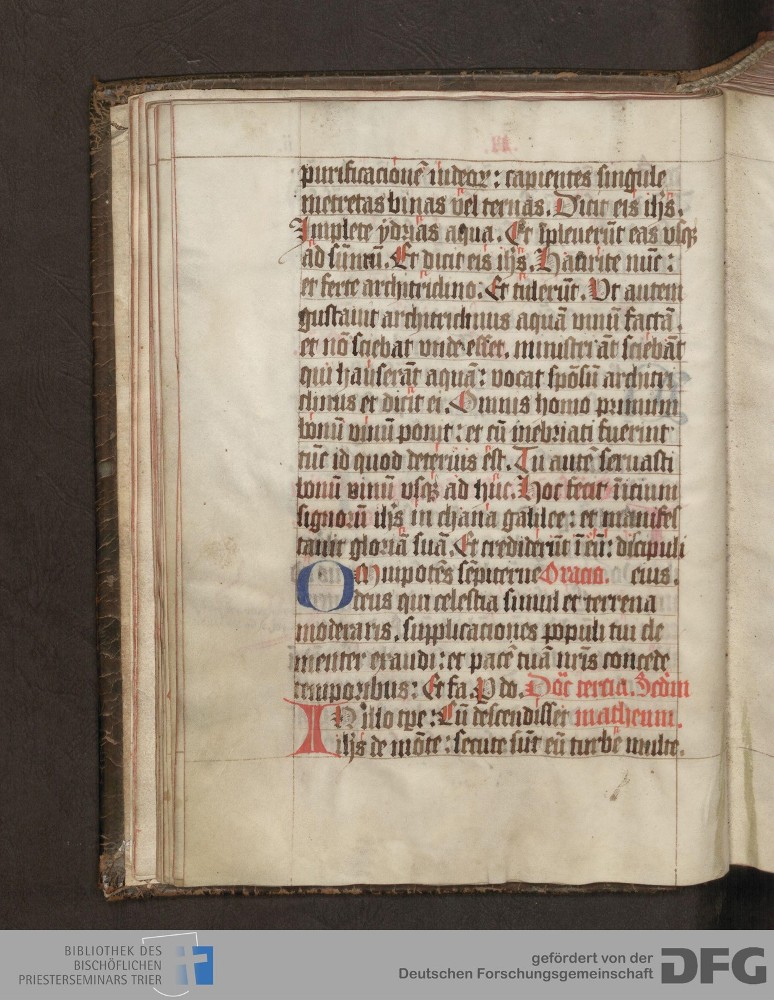 purificacionē iudeoꝝ: capientes singule
metretas binas vel ternas. Dicit eis ih̄s.
Implete ydrias aqua. Et īpleuerūt eas vsqꝫ
ad sūmū. Et dicit eis ih̄s. Haurite nūc:
et ferte architriclino. Et tulerūt. Vt autem
gustauit architriclinus aquā vinū factā.
et nō sciebat vnde esset. ministri āt sciebāt
qui hauserāt aquā: vocat spōsū architri
clinus et dicit ei. Omnis homo primum
bonū vinū ponit: et cū inebriati fuerint
tūc id quod deterius est. Tu autē seruasti
bonū vinū vsqꝫ ad huc. Hoc fecit īicium
signorū ih̄s in chana galilee: et manifes
tauit gloriā suā. Et crediderūt ī eū: discipuli
OMnipotēs sēpiterne Oracio. eius.
deus qui celestia simul et terrena
moderaris. supplicaciones populi tui cle
menter exaudi: et pacē tuā nr̄is concede
temporibus: Et fa. P do. Dōc tercia. Scdm
IN illo tpe: Cū descendisset matheum.
ih̄s de mōte: secute sūt eū turbe multe.
BIBLIOTHEK DES
BISCHÖFLICHEN
PRIESTERSEMINARS TRIER
gefördert von der
Deutschen Forschungsgemeinschaft DFG